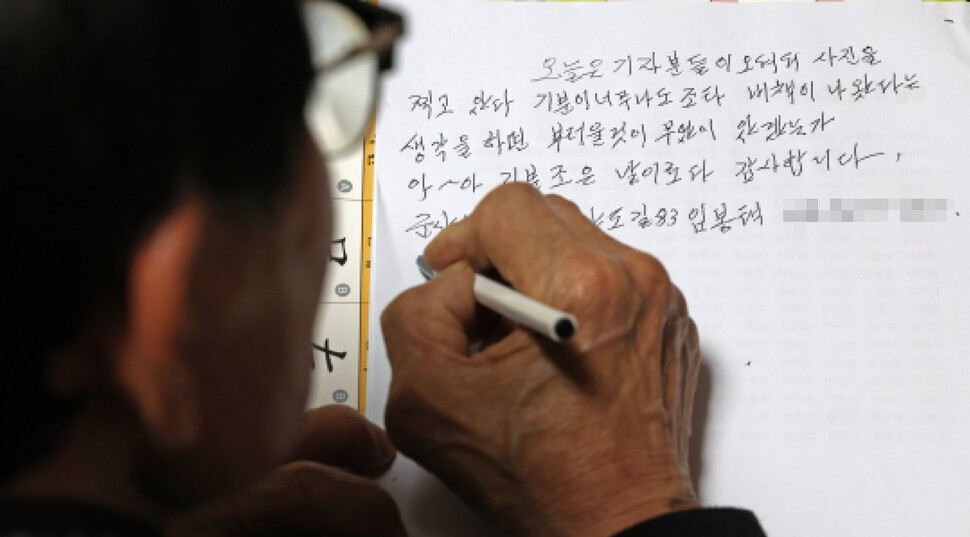 오늘은 기자분들이오셔서 사진을
찍고 있다 기분이너무나도 조타 내책이 나왔다는
생각을 하면 부러울것이 무엇이 있겐는가
아~아 기분조은 날이로다 감사합니다.
도길83 임봉택
A
B
B